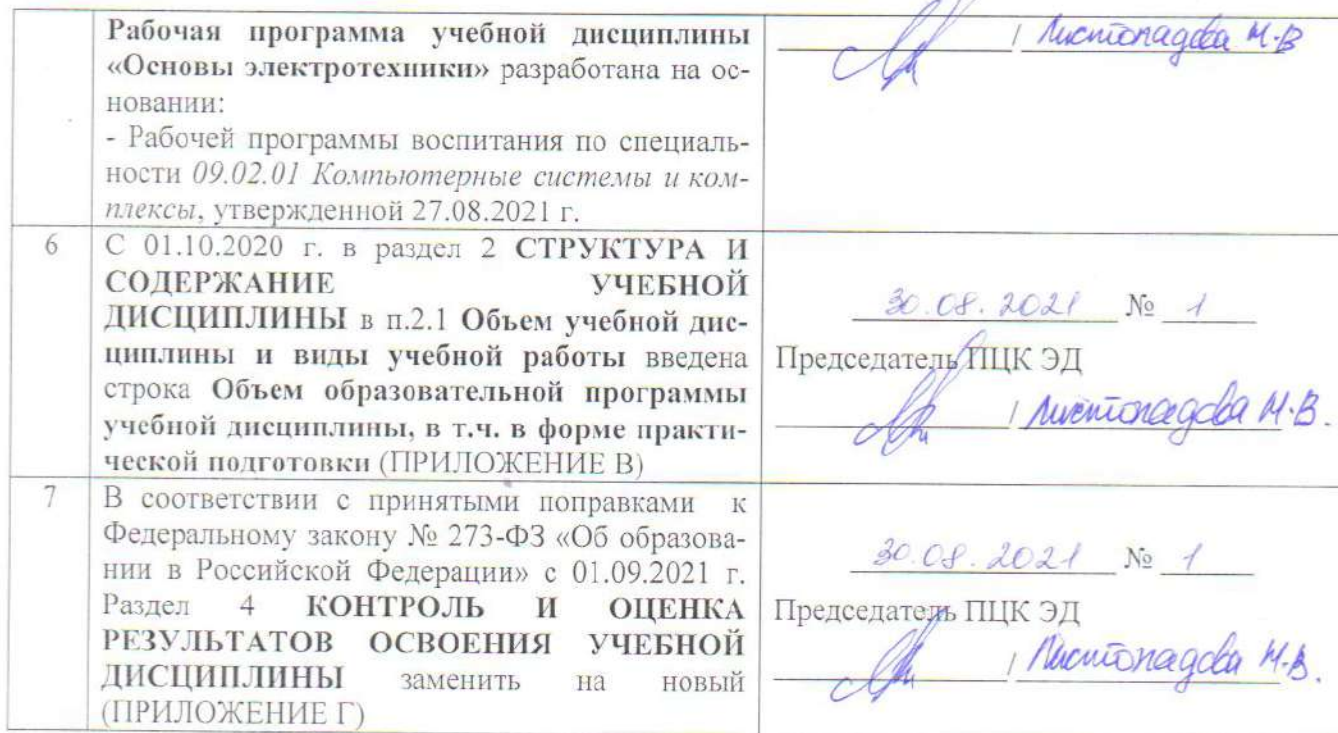 Рабочая программа учебной дисциплины
«Основы электротехники» разработана на ос-
новании:
- Рабочей программы воспитания по специаль-
ности 09.02.01 Компьютерные системы и ком-
плексы, утвержденной 27.08.2021 г.
/ Листопадова Н.В
6
С 01.10.2020 г. в раздел 2 СТРУКТУРА И
СОДЕРЖАНИЕ УЧЕБНОЙ
ДИСЦИПЛИНЫ в п.2.1 Объем учебной дис-
циплины и виды учебной работы введена
строка Объем образовательной программы
учебной дисциплины, в т.ч. в форме практи-
ческой подготовки (ПРИЛОЖЕНИЕ В)
30.08.2021 № 1
Председатель ПЦК ЭД
/ Листопадова Н.В.
7
В соответствии с принятыми поправками к
Федеральному закону № 273-ФЗ «Об образова-
нии в Российской Федерации» с 01.09.2021 г.
Раздел 4 КОНТРОЛЬ И ОЦЕНКА
РЕЗУЛЬТАТОВ ОСВОЕНИЯ УЧЕБНОЙ
ДИСЦИПЛИНЫ заменить на новый
(ПРИЛОЖЕНИЕ Г)
30.08.2021 № 1
Председатель ПЦК ЭД
/ Листопадова Н.В.